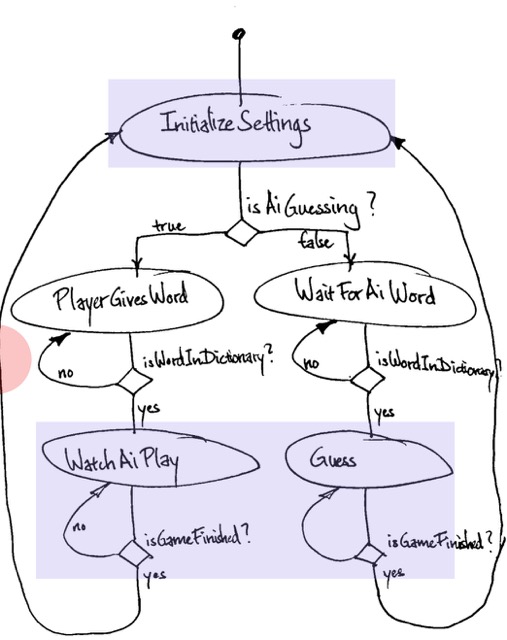 InitializeSettings
isAiGuessing?
true
false
PlayerGivesWord
WaitForAiWord
isWordInDictionary?
isWordInDictionary?
no
no
yes
yes
WatchAiPlay
Guess
no
isGameFinished?
isGameFinished?
yes
yes